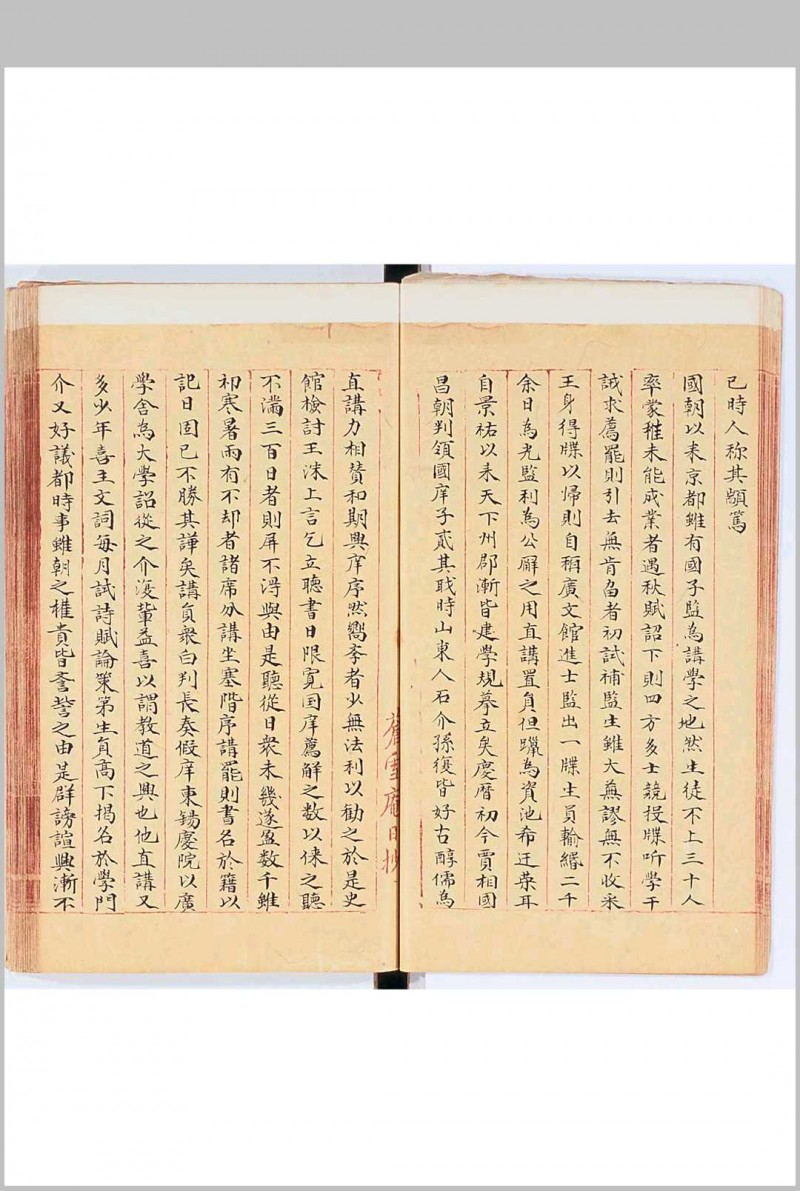 已時人称其顓篤
國朝以来京都雖有國子監為講學之地然生徒不上三十人
率蒙稚未能成業者遇秋賦詔下則四方多士競投牒听學干
試求薦罷則引去無肯留者初試補監生雖大蕪謬無不收采
王身得牒以帰則自稱廣文館進士監出一牒生員輸緡二千
余日為光監利為公廨之用直講置負但躐為資池希迁荣耳
自景祐以来天下州郡漸皆建學規摹立矣慶曆初今賈相國
昌朝判領國庠予貳其職時山東人石介孫復皆好古醇儒為
直講力相賛和期興庠序然嚮孝者少無法利以勸之於是史
館檢討王洙上言乞立聽書日限寬国庠薦解之数以徠之聽
不滿三百日者則屏不淂與由是聽從日衆未幾遂盈数千雖
祁寒暑雨有不却者諸席分講坐塞階序講罷則書名於籍以
記日固已不勝其譁矣講負衆白判長奏假庠東錫慶院以廣
學舍為大學詔從之介復輩益喜以謂教道之興也他直講又
多少年喜主文詞每月試詩賦論策第生負高下揭名於學門
介又好議都時事雖朝之權貴皆訾誉之由是群謗諠興漸不